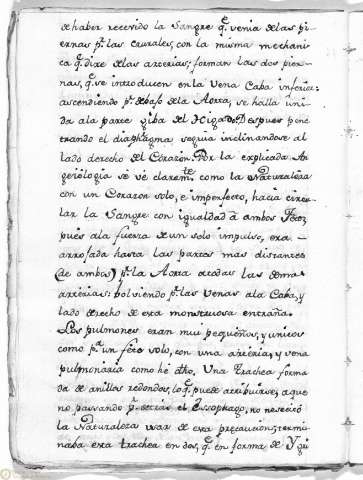 de haber recevido la Sangre q.e venia de las pi-
ernas p.r las crurales, con la misma mechani-
ca q.e dixe de las arterias; forman las dos pier-
nas, q.e se introducen en la Vena Caba inferior:
ascendiendo p.r debaxo de la Aorta, se halla uni-
da a la parte giba del Higado. Despues pene
trando el diaphragma seguia inclinandose al
lado derecho del Corazon. Por la explicada An
geiologia se vé claram.te como la Naturaleza
con un Corazon solo, é imperfecto, hacia circu-
lar la Sangre con igualdad à ambos Fetos,
pues ala fuerza de un solo impulso, era
arrojada hasta las partes mas distantes
(de ambos) p.r la Aorta atodas las demas
arterias: bolviendo p.r las Venas ala Caba, y
lado derecho de esta monstruosa entraña.
Los pulmones eran mui pequeños, y unicos
como p.a un feto solo, con una arteria, y vena
pulmonaria como hé dho. Una trachea forma
da de anillos redondos, lo q.e puede atribuirse, a que
no passando p.r detras el Essophago, no necesitó
la Naturaleza usar de esta precaucion; termi
naba esta trachea en dos, q.e en forma de Y gri